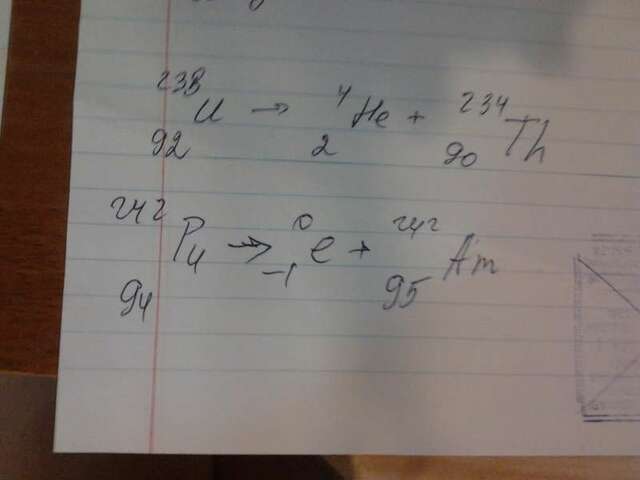 ²³⁸₉₂U → ⁴₂He + ²³⁴₉₀Th
²⁴²₉₄Pu → ⁰₋₁e + ²⁴²₉₅Am